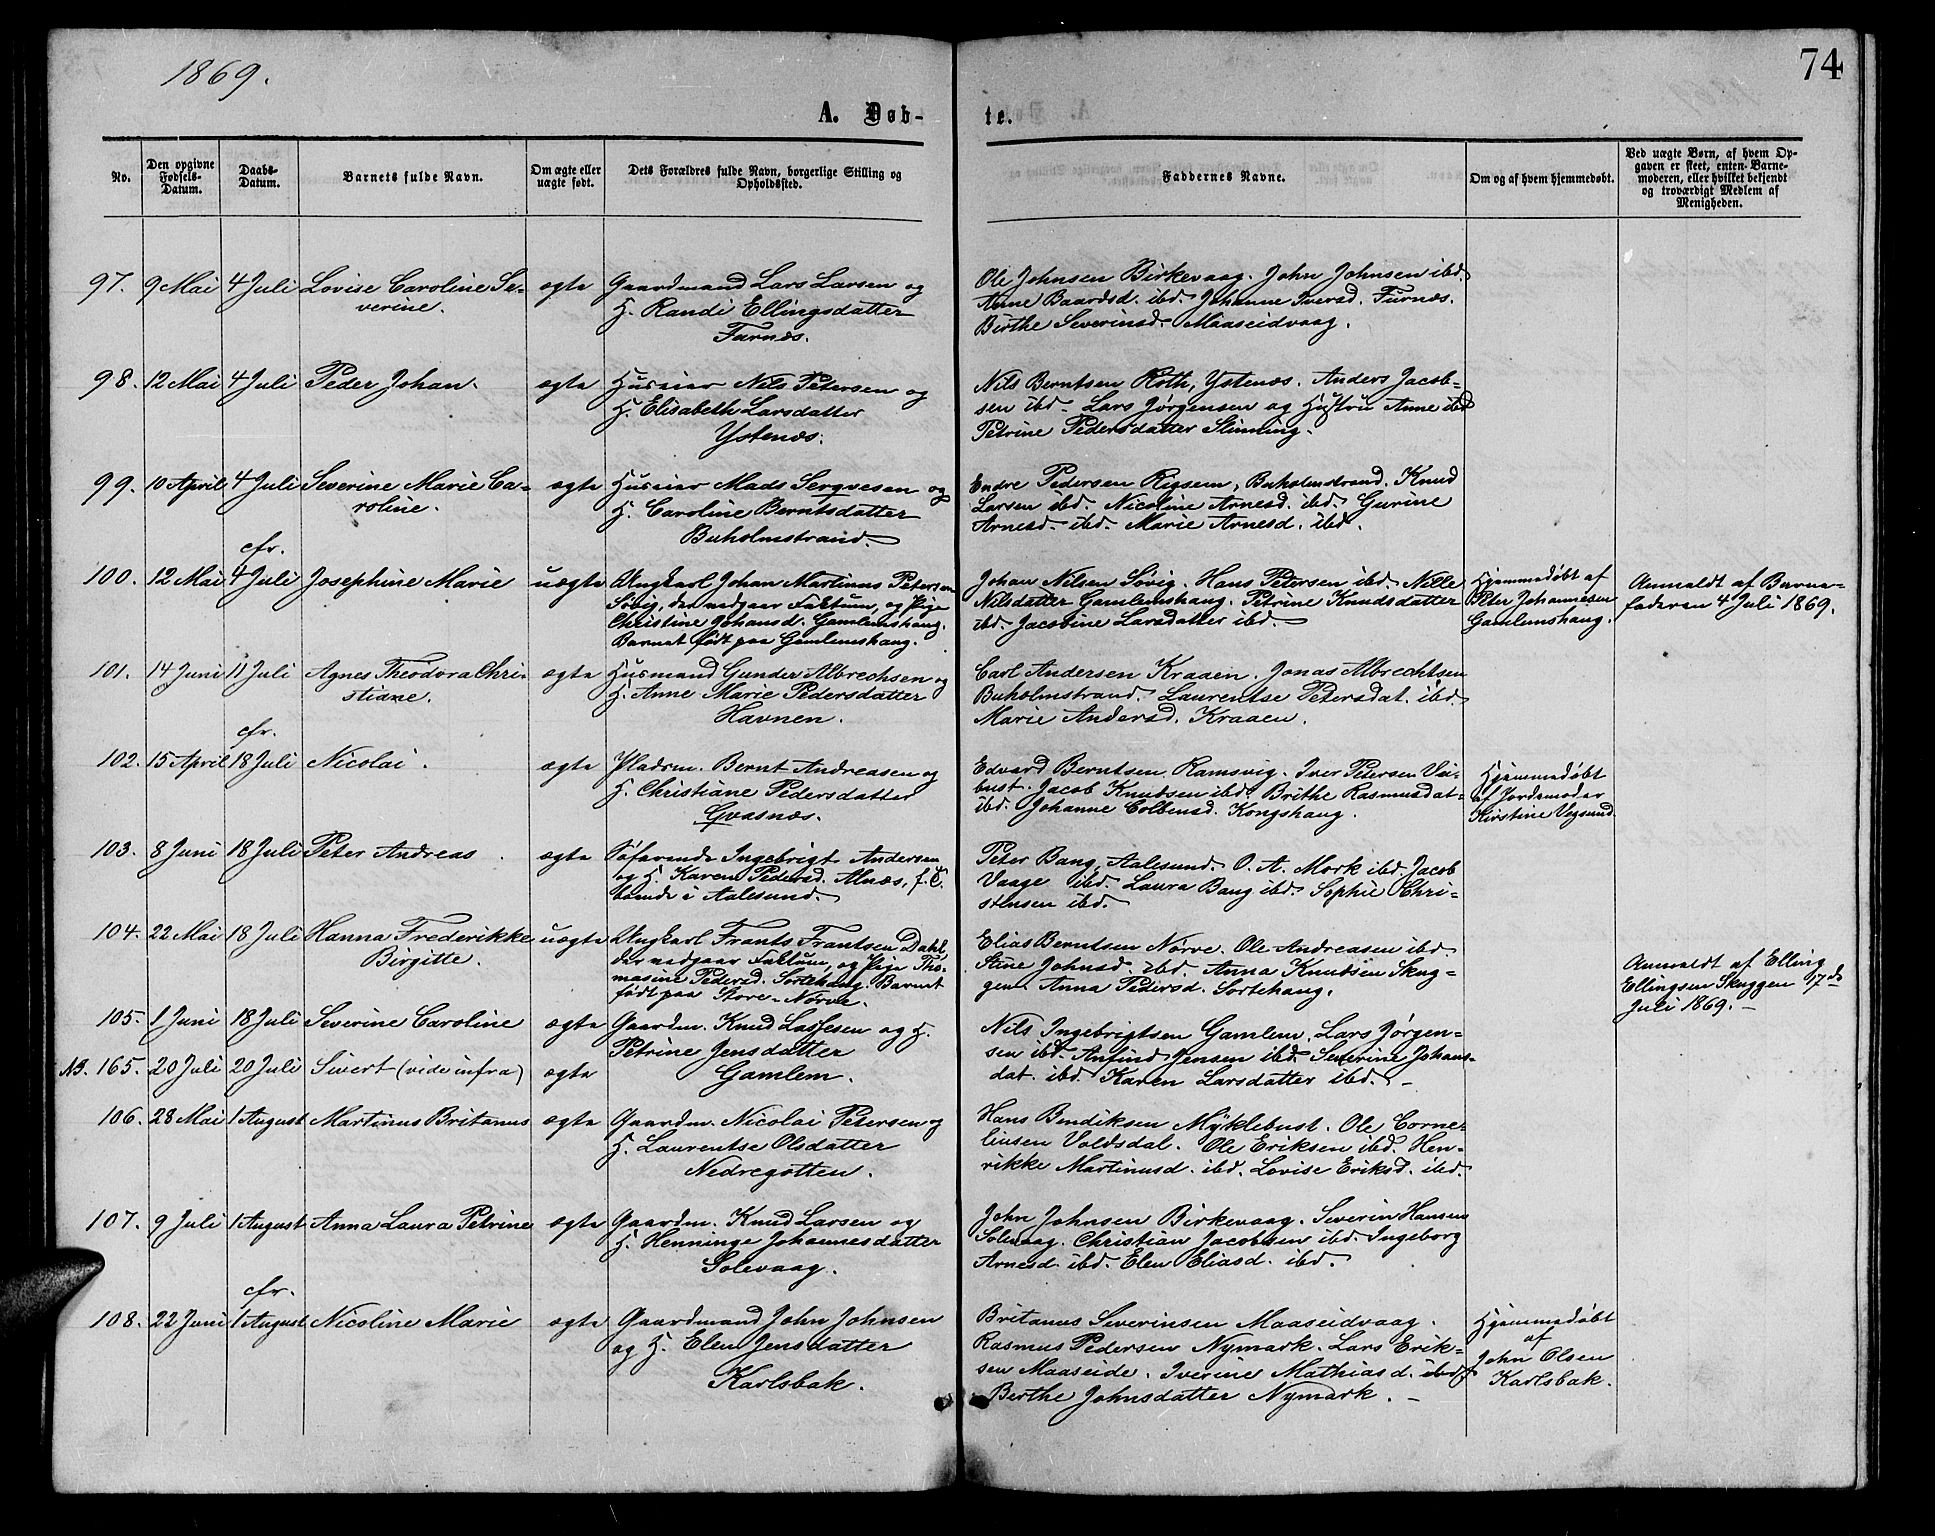 1869.
74
A. Døb-
te.
No.
Den opgivne
Fødsels-
Datum.
Daabs-
Datum.
Barnets fulde Navn.
Om ægte eller
uægte født.
Dets Forældres fulde Navn, borgerlige Stilling og
Opholdssted.
Faddernes Navne.
Om og af hvem hjemmedøbt.
Ved uægte Børn, af hvem Op-
gaven er skeet, enten Barne-
moderen, eller hvilket bekjendt
og troværdigt Medlem af
Menigheden.
97. 9 Mai 4 Juli Lovise Caroline Se- ægte Gaardmand Lars Larsen og
verine. H. Randi Ellingsdatter
Furnæs.
Ole Johnsen Birkevaag. John Johnsen ibd.
Anne Baardsd. ibd. Johanne Iversd. Furnæs.
Birthe Severinsd. Maaseidvaag.
98. 12 Mai 4 Juli Peder Johan. ægte Huseier Nils Petersen og
H. Elisabeth Larsdatter
Ystenæs.
Nils Berntsen Roth, Ystenæs. Anders Jacob-
sen ibd. Lars Jørgensen og Hustru Anne ibd
Petrine Pedersdatter Slinning.
99. 10 April 4 Juli Severine Marie Ca- ægte Huseier Mads Sergvesen og
roline. H. Caroline Berntsdatter
Buholmstrand.
Endre Pedersen Rigsem, Buholmstrand. Knud
Larsen ibd. Nicoline Arnesd. ibd. Gurine
Arnesd. ibd. Marie Arnesd. ibd.
cfr.
100. 12 Mai 4 Juli Josephine Marie uægte Ungkarl Johan Martinus Petersen
Søvig, der vedgaar Faktum, og Pige
Christine Johansd. Gamlemshaug.
Barnet født paa Gamlemshaug.
Johan Nilsen Søvig. Hans Petersen ibd. Nille
Nilsdatter Gamlemshaug. Petrine Knudsdatter
ibd. Jacobine Larsdatter ibd.
Hjemmedøbt af
Peter Johannesen
Gamlemshaug.
Anmeldt af Barne-
faderen 4 Juli 1869.
101. 14 Juni 11 Juli Agnes Theodora Chri- ægte Husmand Gunder Albrechsen og
stiane. H. Anne Marie Pedersdatter
Havnen.
Carl Andersen Kraaen. Jonas Albrechtsen
Buholmstrand. Laurentse Petersdat. ibd.
Marie Andersd. Kraaen.
cfr.
102. 15 April 18 Juli Nicolai. ægte Pladsm. Bernt Andreasen og
H. Christiane Pedersdatter
Gvasnæs.
Edvard Berntsen Ramsvig. Iver Petersen Ve-
bust. Jacob Knudsen ibd. Brithe Rasmusdat-
ibd. Johanne Colbensd. Kongshaug.
Hjemmedøbt
af Jordemoder
Kirstine Vegsund.
103. 8 Juni 18 Juli Peter Andreas. ægte Søfarende Ingebrigt Andersen
og H. Karen Pedersd. Alnæs, f. T.
boende i Aalesund.
Peter Bang, Aalesund. O. A. Mork ibd. Jacob
Vaage ibd. Laura Bang ibd. Sophie Chri-
stensen ibd.
104. 22 Mai 18 Juli Hanna Frederikke uægte Ungkarl Frants Frantsen Dahl,
Birgitte. der vedgaar Faktum, og Pige Tho-
masine Pedersd. Sortehaug. Barnet
født paa Store-Nørve.
Elias Berntsen Nørve. Ole Andreasen ibd
Stine Johnsd. ibd. Anna Knudsen Skug-
gen. Anna Pedersd. Sortehaug.
Anmeldt af Elling
Ellingsen Skuggen 17de
Juli 1869.
105. 1 Juni 18 Juli Severine Caroline ægte Gaardm. Knud Lassesen og H.
Petrine Jensdatter
NB. 165. 20 Juli 20 Juli Sivert (vide infra) ægte Gamlem.
Nils Ingebrigtsen Gamlem. Lars Jørgen-
sen ibd. Anfind Jensen ibd. Severine Johans-
dat. ibd. Karen Larsdatter ibd.
106. 28 Mai 1 August Martinus Britanus ægte Gaardm. Nicolai Petersen og
H. Laurentse Olsdatter
Nedregotten.
Hans Bendiksen Myklebust. Ole Corne-
liusen Valdsdal. Ole Eriksen ibd. Hen-
rikke Martinusd. ibd. Lovise Eriksd. ibd.
107. 9 Juli 1 August Anna Laura Petrine ægte Gaardm. Knud Larsen og
H. Henninge Johannesdatter
Solevaag.
John Johnsen Birkevaag. Severin Hansen
Solevaag. Christian Jacobsen ibd. Ingeborg
Arnesd. ibd. Elen Eliasd. ibd.
cfr.
108. 22 Juni 1 August Nicoline Marie ægte Gaardmand John Johnsen
og H. Elen Jensdatter
Karlsbak.
Britanus Severinsen Maaseidvaag.
Rasmus Pedersen Nymark. Lars Erik-
sen Maaseide. Iverine Mathiasd. ibd.
Berthe Johnsdatter Nymark.
Hjemmedøbt
af
John Olsen
Karlsbak.